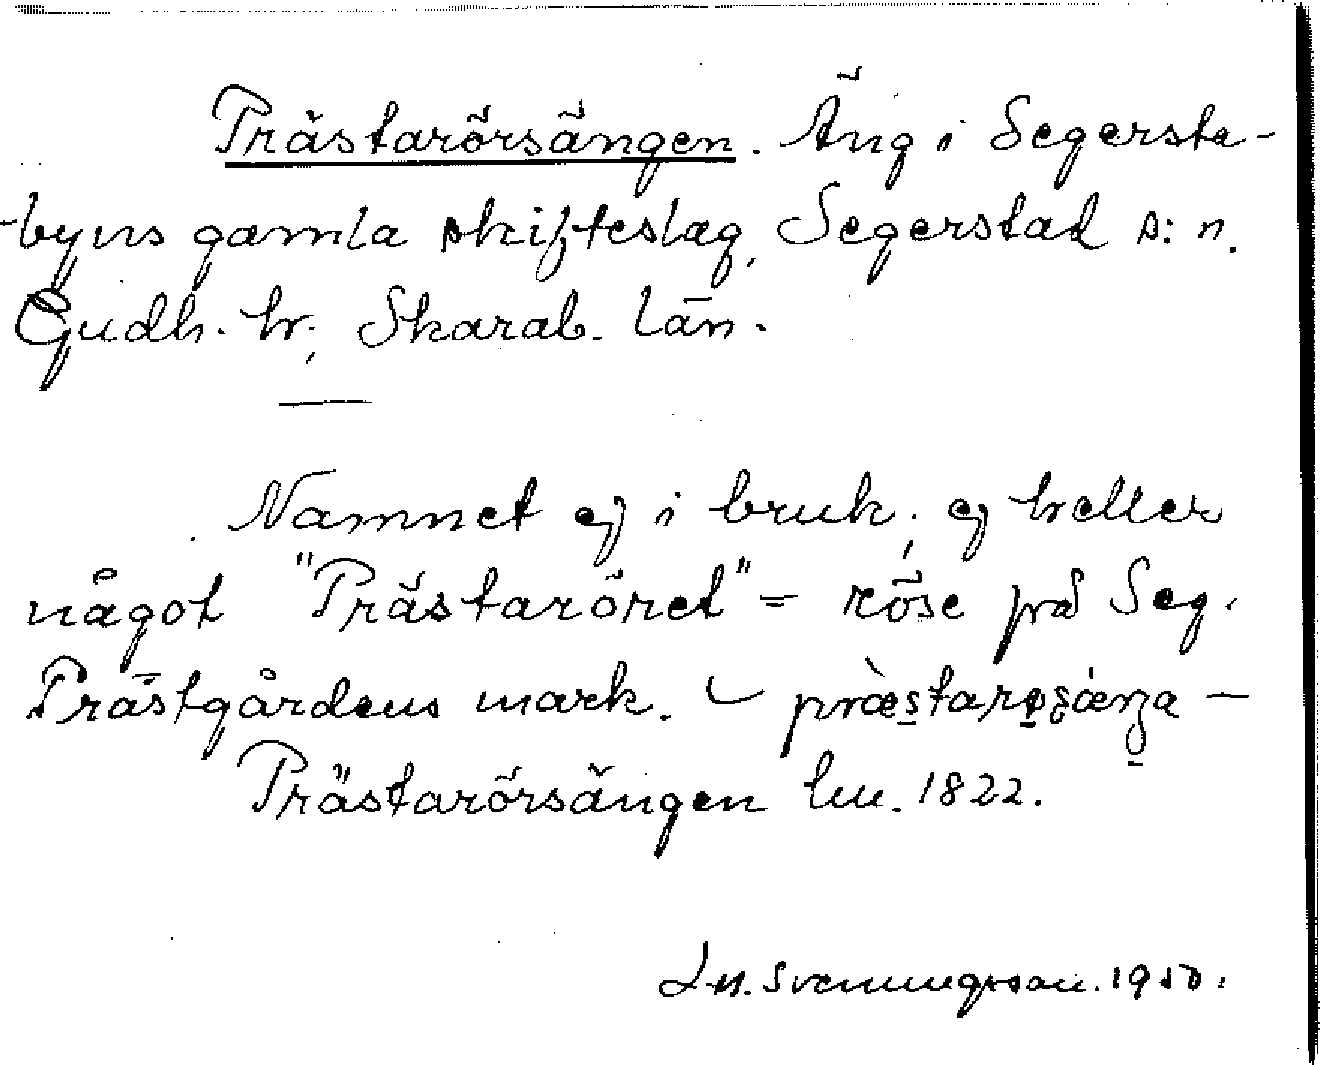 Prästarörsängen. Äng i Segersta-
-byns gamla skifteslag, Segerstad s:n.
Gudh. hr, Skarab. län.
Namnet ej i bruk, ej heller
något "Prästaröret" = röse på Seg.
Prästgårdens mark. –
Prästarörsängen lm. 1822.
Svenningsson. 1950.